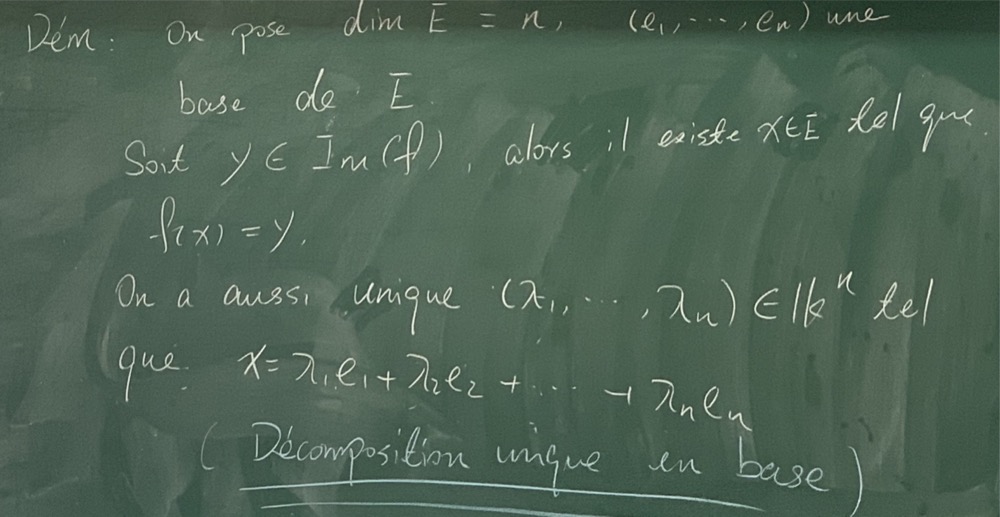 Dém : On pose dim E = n, (e₁, ..., eₙ) une
base de E.
Soit y ∈ Im(f), alors il existe x∈E tel que
f(x) = y.
On a aussi unique (λ₁, ..., λₙ) ∈ 𝕜ⁿ tel
que x = λ₁e₁ + λ₂e₂ + .... + λₙeₙ
( Décomposition unique en base )